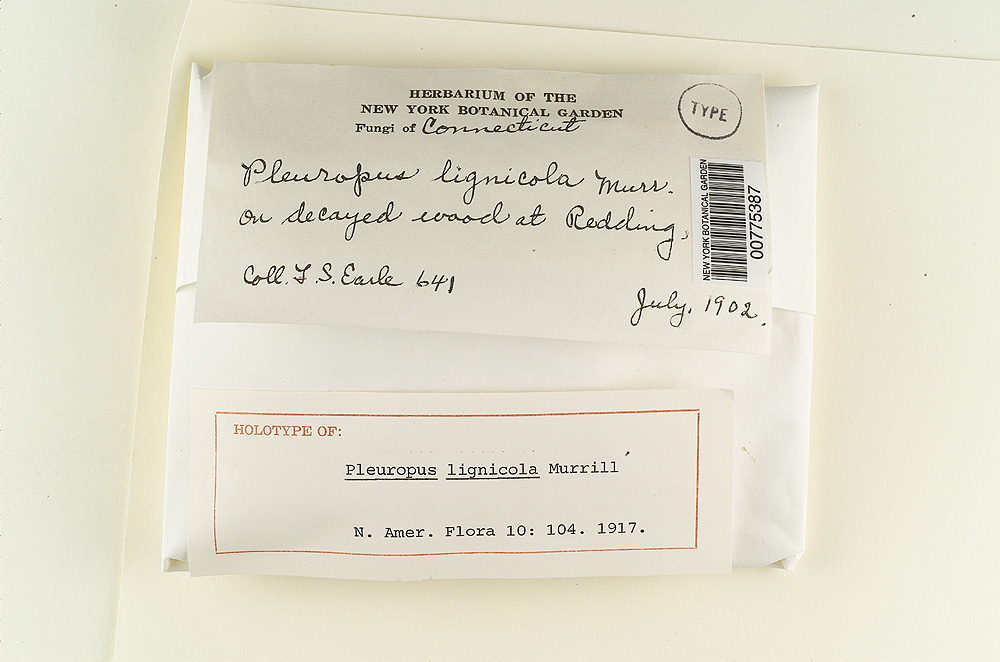 HERBARIUM OF THE
NEW YORK BOTANICAL GARDEN
Fungi of Connecticut
TYPE
Pleuropus lignicola Murr.
on decayed wood at Redding,
Coll. F. S. Earle 641
July, 1902.
NEW YORK BOTANICAL GARDEN
00775387
HOLOTYPE OF:
Pleuropus lignicola Murrill
N. Amer. Flora 10: 104. 1917.